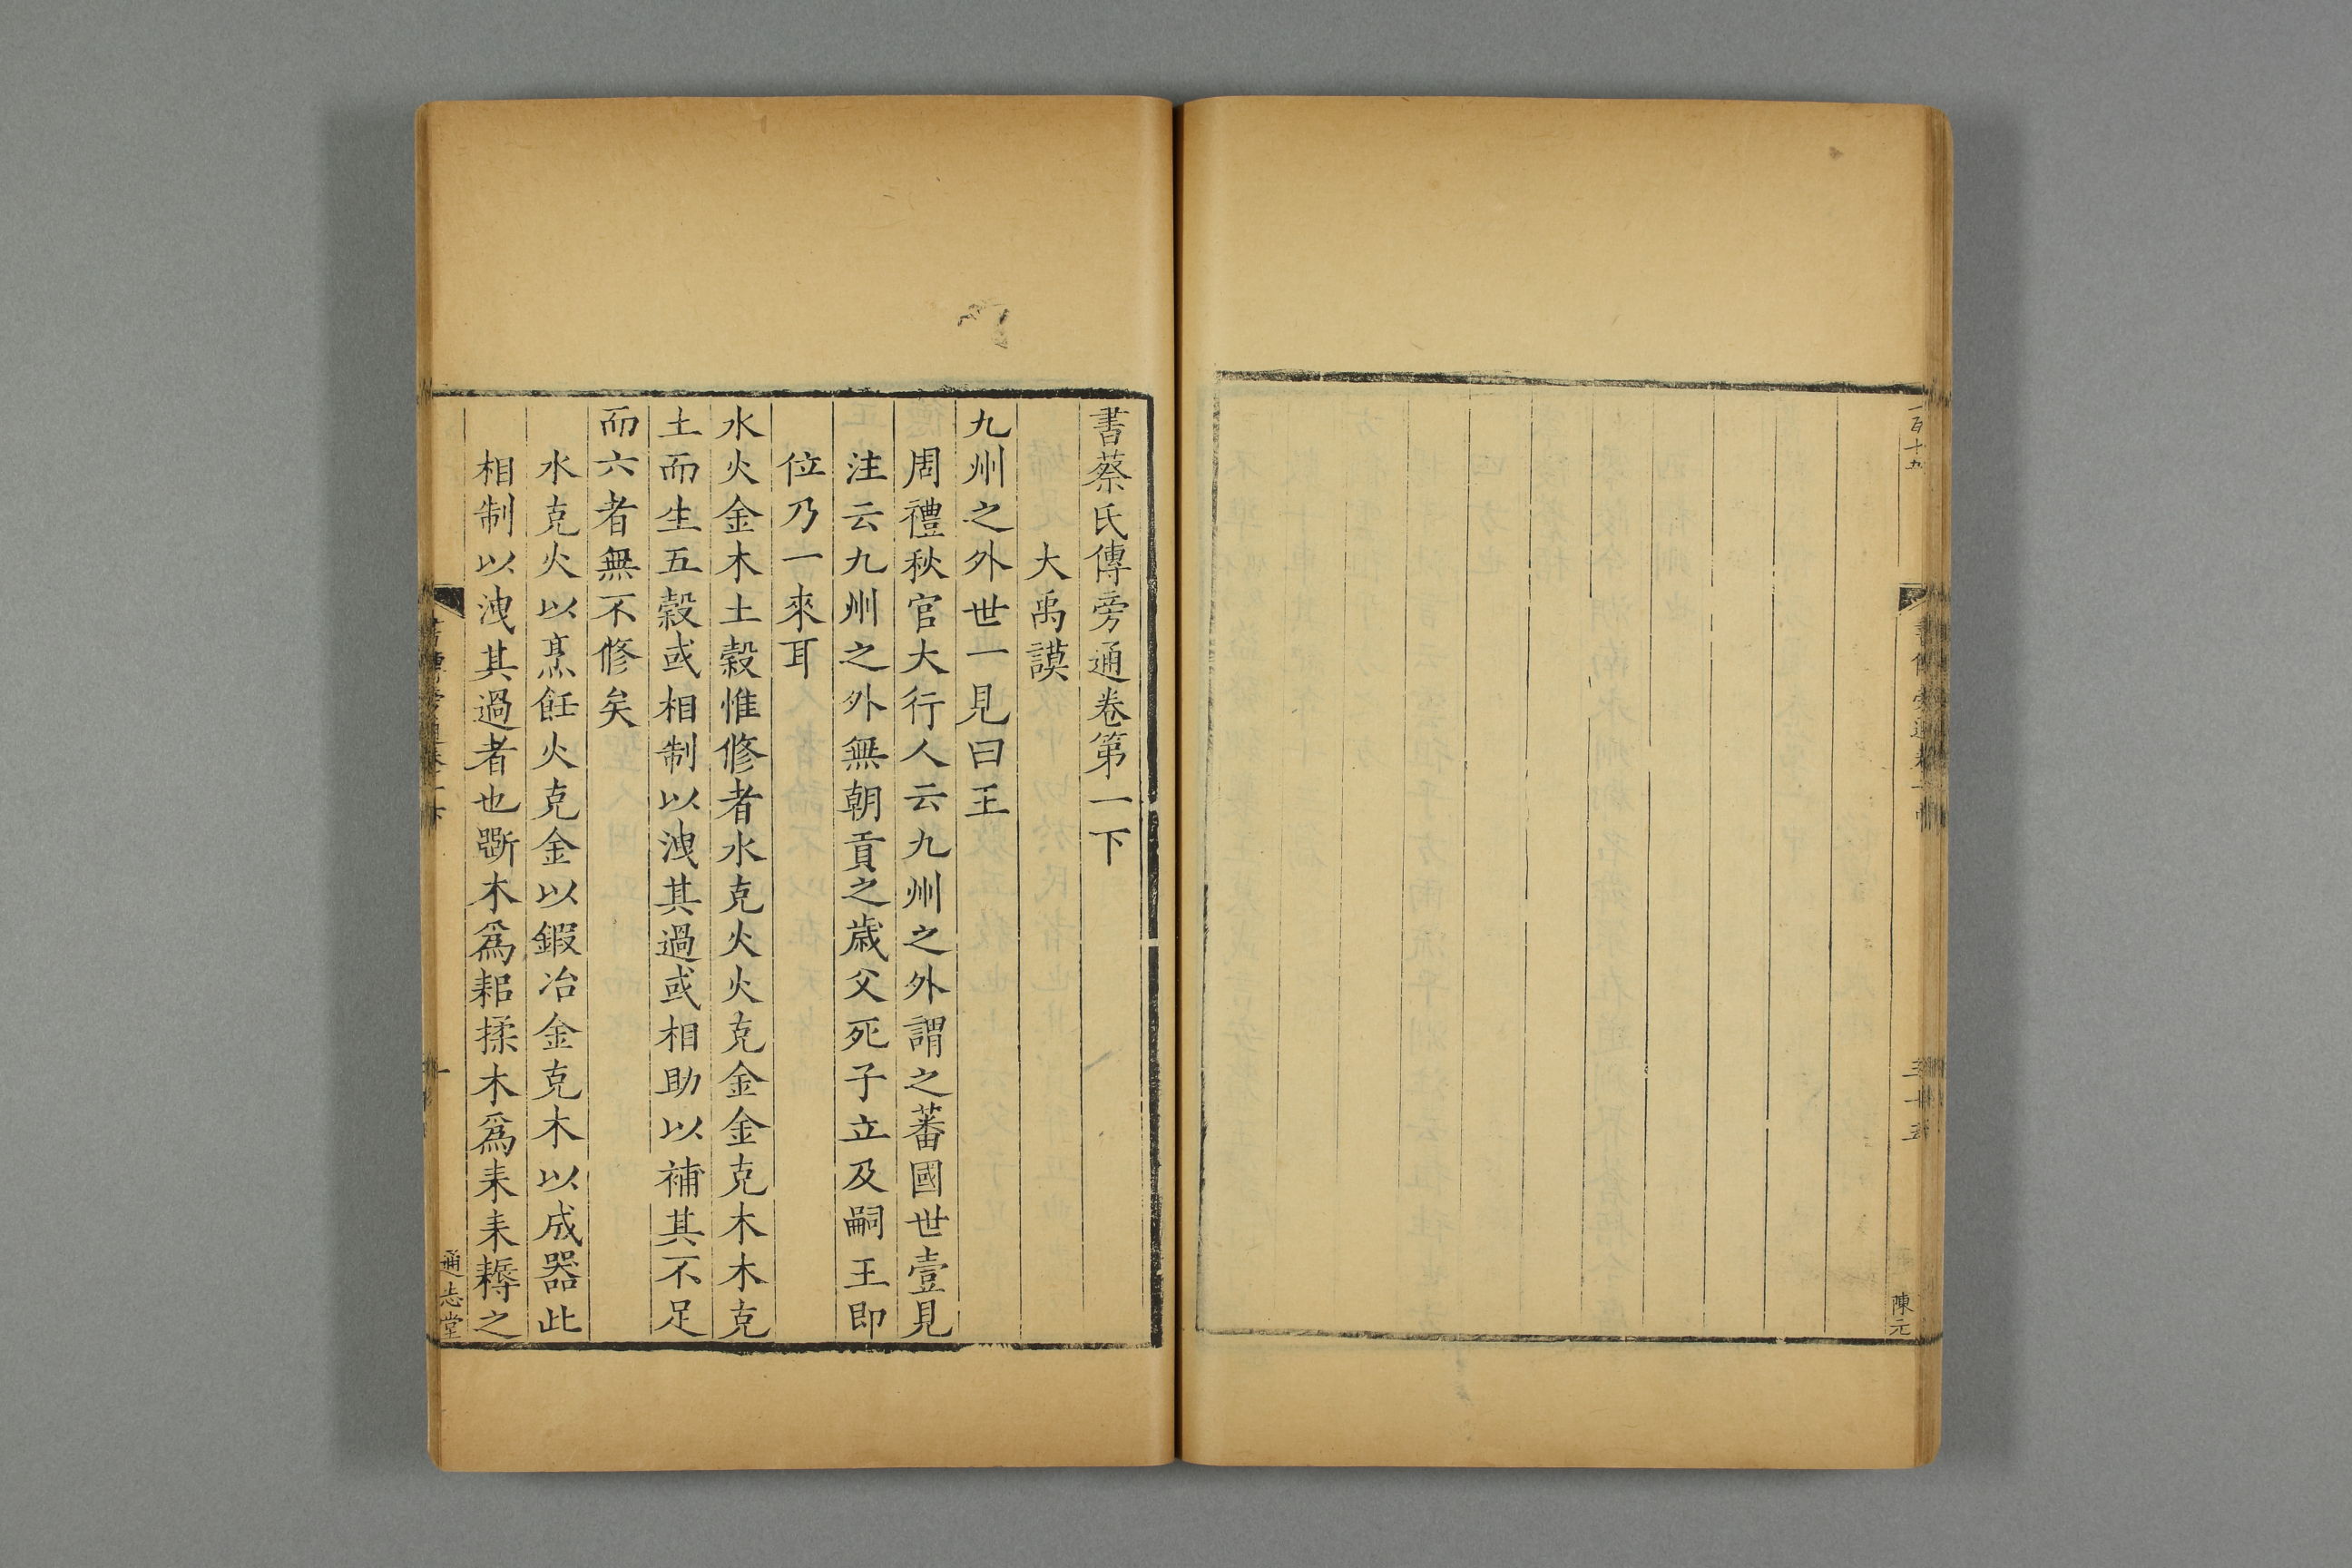 一百十九
陳元
書蔡氏傳旁通卷第一下
大禹謨
九州之外世一見曰王
周禮秋官大行人云九州之外謂之蕃國世壹見
注云九州之外無朝貢之歲父死子立及嗣王即
位乃一來耳
水火金木土穀惟修者水克火火克金金克木木克
土而生五穀或相制以洩其過或相助以補其不足
而六者無不修矣
水克火以烹飪火克金以鍛冶金克木以成器此
相制以洩其過者也斵木爲耜揉木爲耒耒耨之
一
通志堂